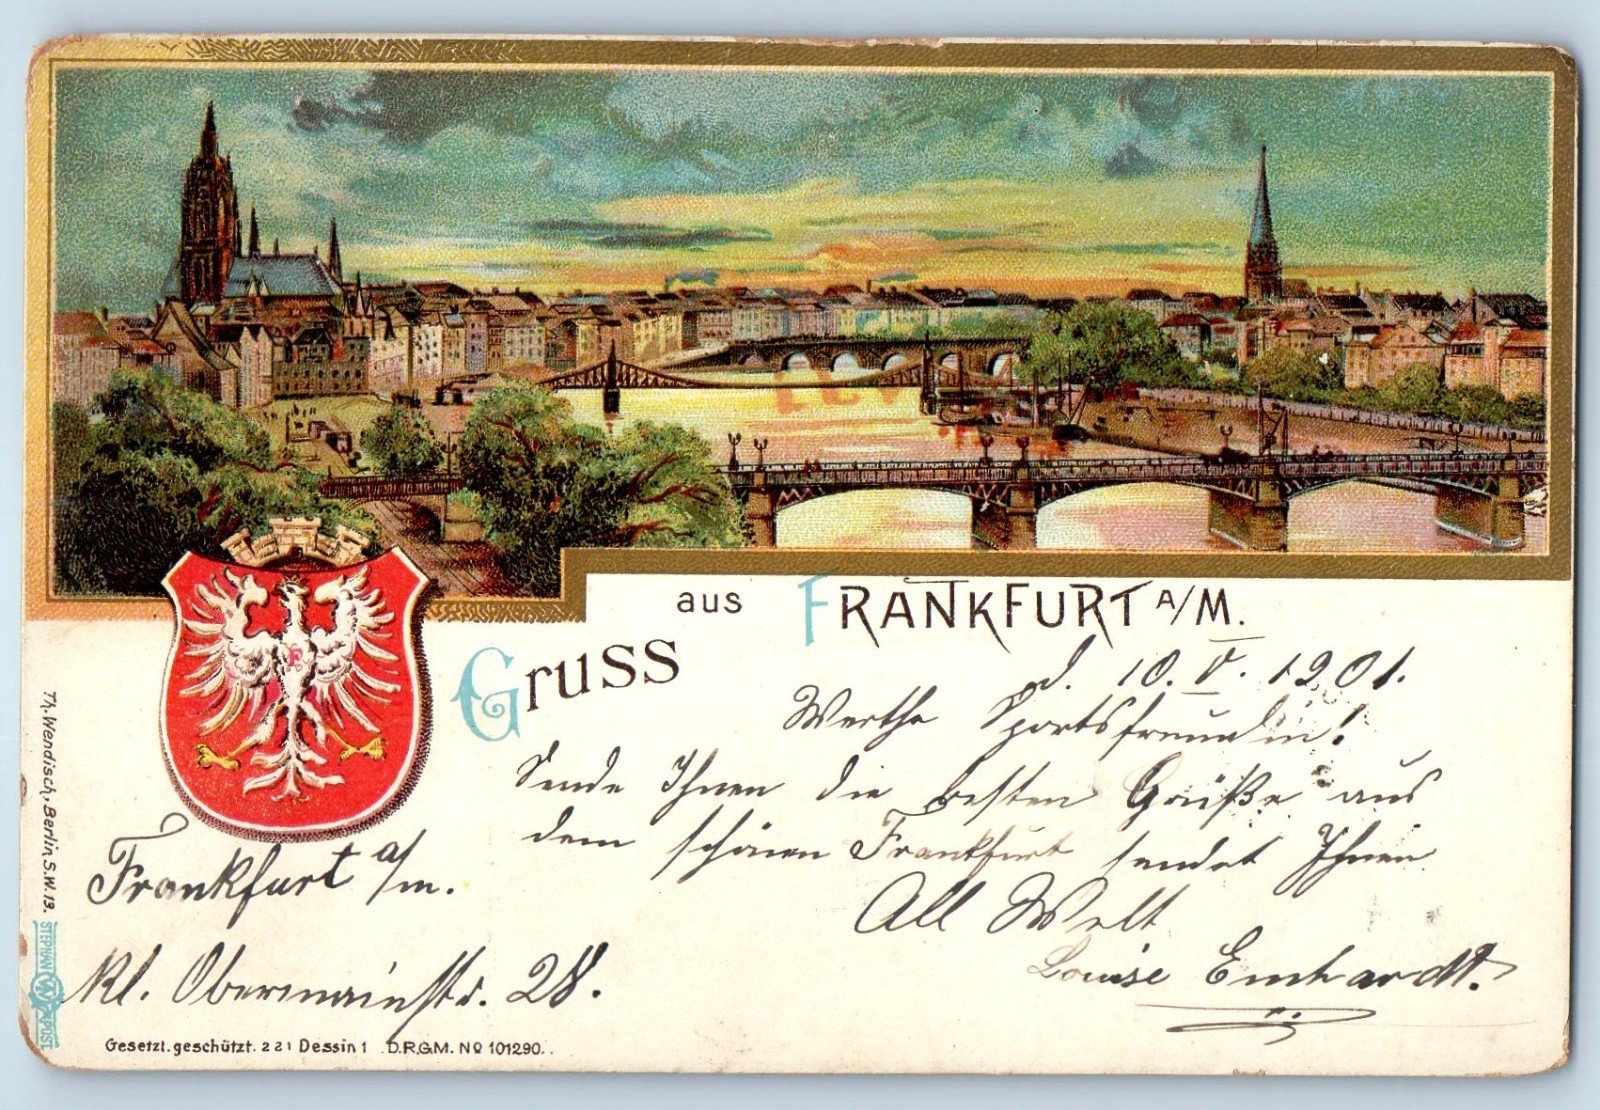 Gruss aus FRANKFURT A/M.
d. 10. V. 1901.
Werthe Sportsfreundin!
Sende Ihnen die besten Grüße aus
dem schönen Frankfurt sendet Ihnen
All Welt
Louise Emhardt.
Frankfurt a/m.
Kl. Obermainstr. 28.
Th. Wendisch, Berlin S.W. 13.
STEPHAN W POST
Gesetzl. geschützt. 221 Dessin 1 D.R.G.M. No 101290.